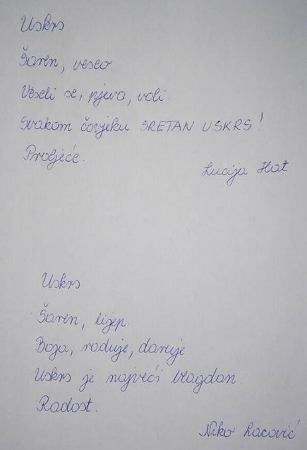 Uskrs
Šaren, veseo
Veseli se, pjeva, voli.
Svakom čovjeku SRETAN USKRS!
Proljeće.
Lucija Hat
Uskrs
Šaren, lijep
Boja, raduje, daruje
Uskrs je najveći blagdan.
Radost.
Niko Lacović